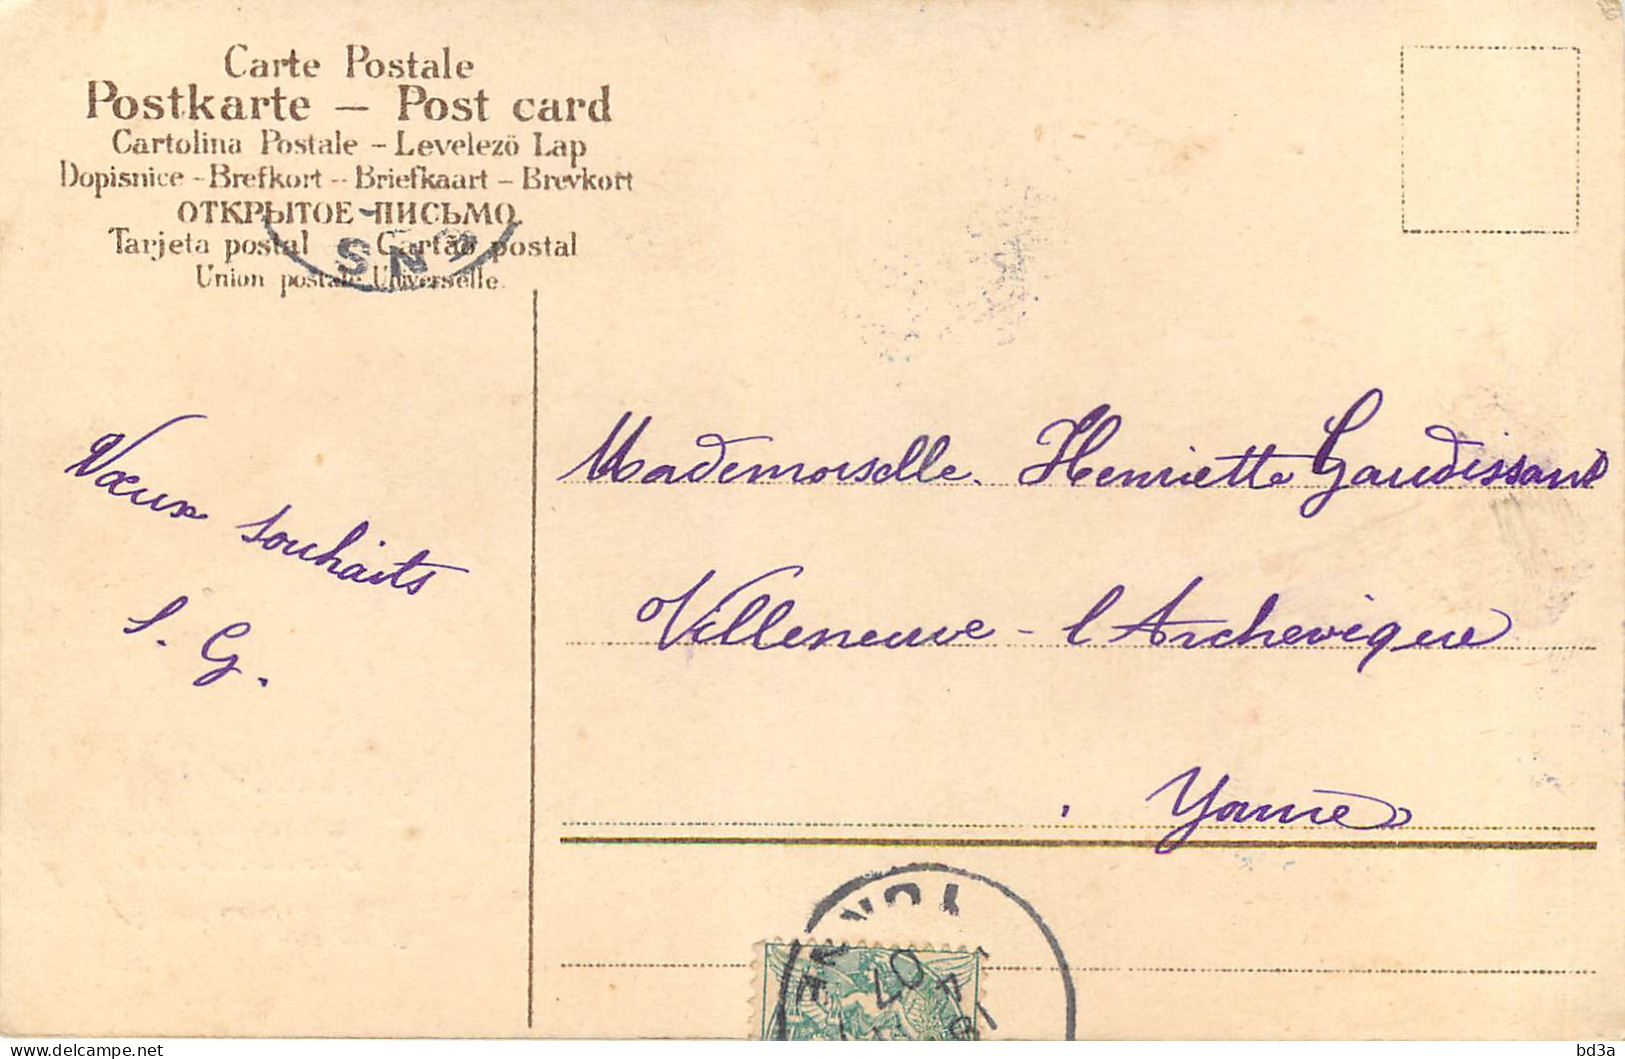 Carte Postale
Postkarte – Post card
Cartolina Postale – Levelező Lap
Dopisnice – Brefkort – Briefkaart – Brevkort
ОТКРЫТОЕ ПИСЬМО.
Tarjeta postal Cartão postal
Union postale Universelle.
NS
Voeux souhaits
S. G.
Mademoiselle Henriette Gaudissant
Villeneuve-l'Archevêque
Yonne
YONNE
07
bd3a